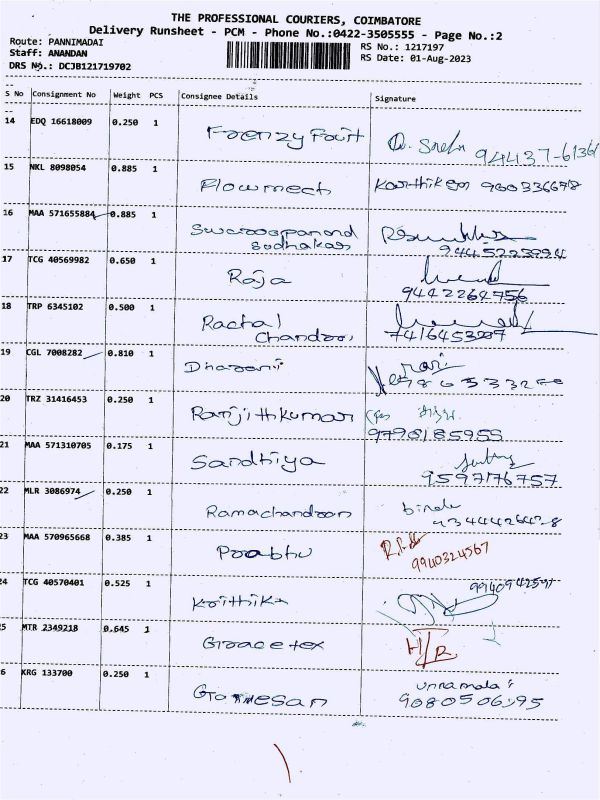 THE PROFESSIONAL COURIERS, COIMBATORE
Delivery Runsheet - PCM - Phone No.:0422-3505555 - Page No.:2
Route: PANNIMADAI
RS No.: 1217197
Staff: ANANDAN
RS Date: 01-Aug-2023
DRS No.: DCJB121719702
S No Consignment No Weight PCS Consignee Details Signature
14 EDQ 16618009 0.250 1 Frenzy Fruit 94437-61361
15 NKL 8098054 0.885 1 Flowmech Karthikeyan
16 MAA 571655884 0.885 1 Swaroopanand
Sudhakar
17 TCG 40569982 0.650 1 Raja
9442264756
18 TRP 6345102 0.500 1 Rachal
Chandran 7416453907
19 CGL 7008282 0.810 1 Dharani
20 TRZ 31416453 0.250 1 Ranjithkumar
9798185955
21 MAA 571310705 0.175 1 Sandhiya
9597176757
22 MLR 3086974 0.250 1 Ramachandran
23 MAA 570965668 0.385 1 Prabhu
9940324567
24 TCG 40570401 0.525 1 Krithika
25 MTR 2349218 0.645 1 Gracetex H/R
26 KRG 133700 0.250 1 Unnamalai